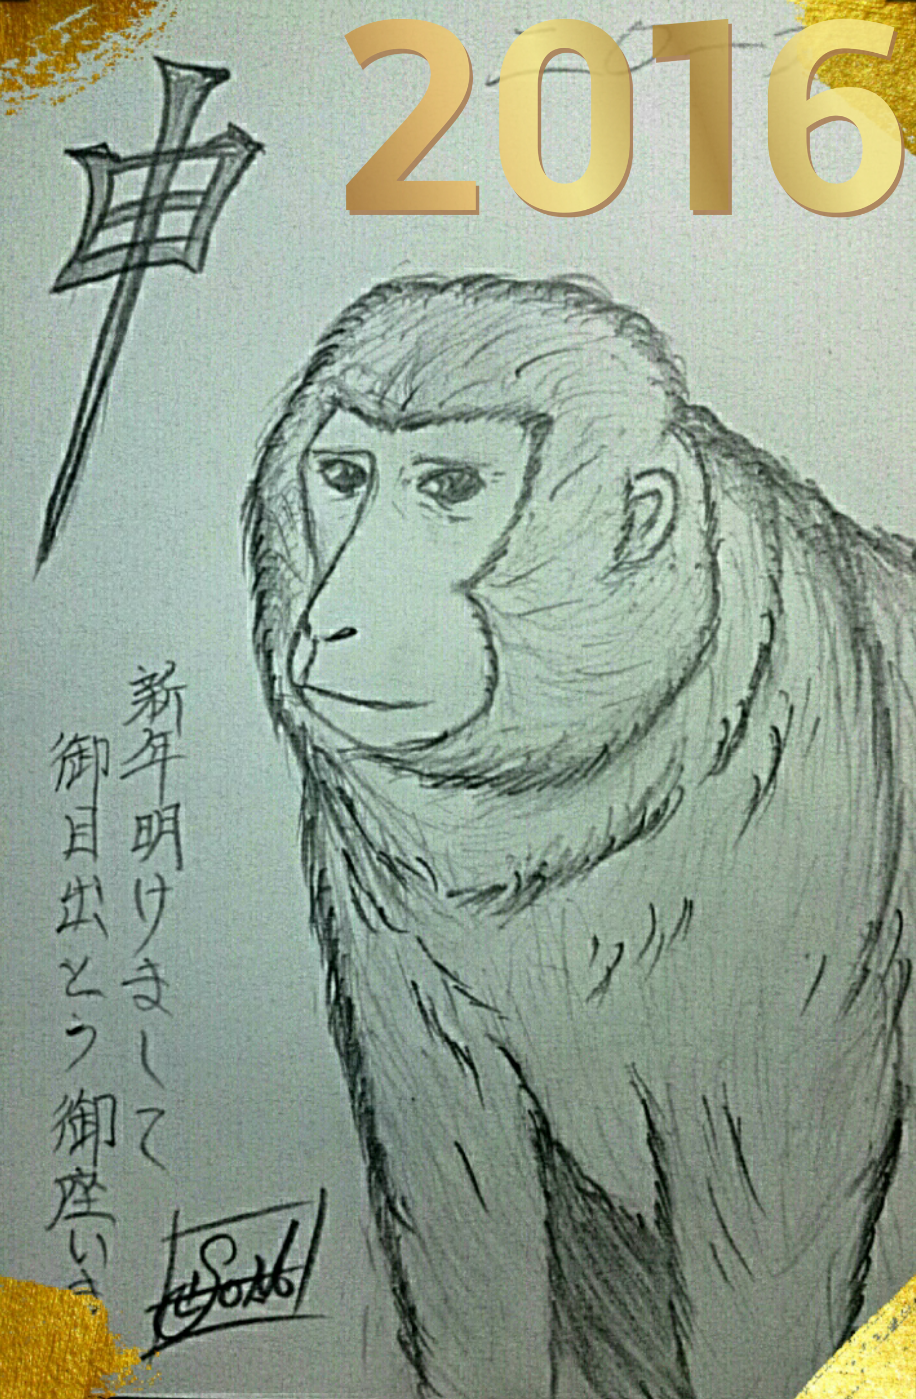 2016
申
新年明けまして
御目出とう御座いま